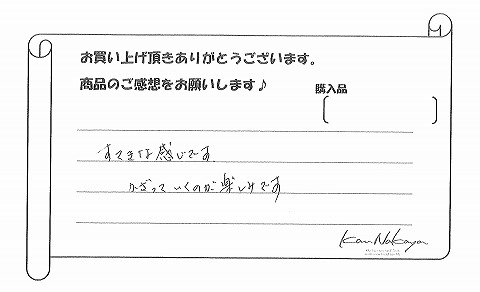 お買い上げ頂きありがとうございます。
商品のご感想をお願いします♪
購入品
すてきな感じです
かざっていくのが楽しみです
Kan Nakaya